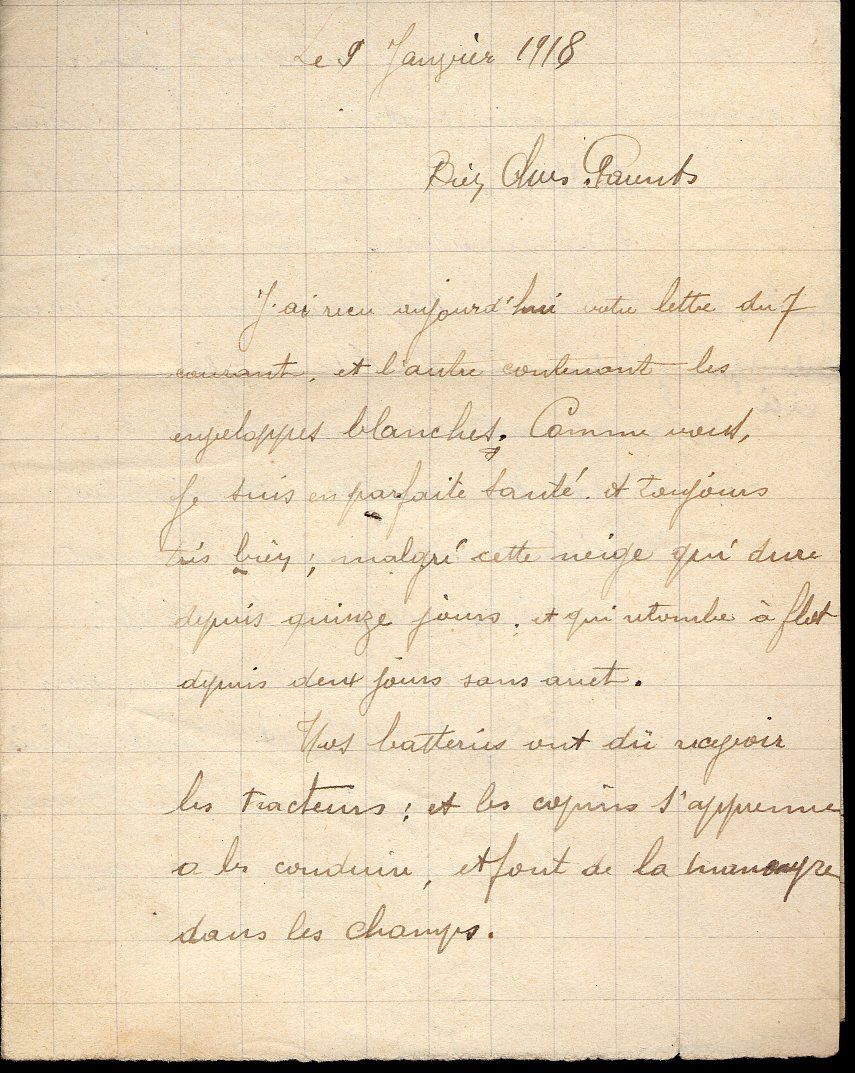 Le 9 Janvier 1918
Bien Chers Parents
J'ai recu aujourd'hui votre lettre du 7
courant, et l'autre contenant les
enveloppes blanches. Comme vous,
je suis en parfaite santé et toujours
très bien ; malgré cette neige qui dure
depuis quinze jours, et qui retombe à flot
depuis deux jours sans arret.
Nos batteries ont dû recevoir
les tracteurs ; et les copins s'apprenne
a les conduire, et font de la manoeuvre
dans les champs.